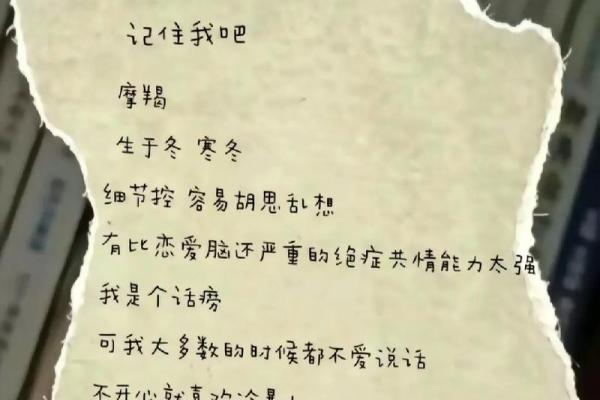 记住我吧
摩羯
生于冬 寒冬
细节控 容易胡思乱想
有比恋爱脑还严重的绝症共情能力太强
我是个话痨
可我大多数的时候都不爱说话
不开心就喜欢